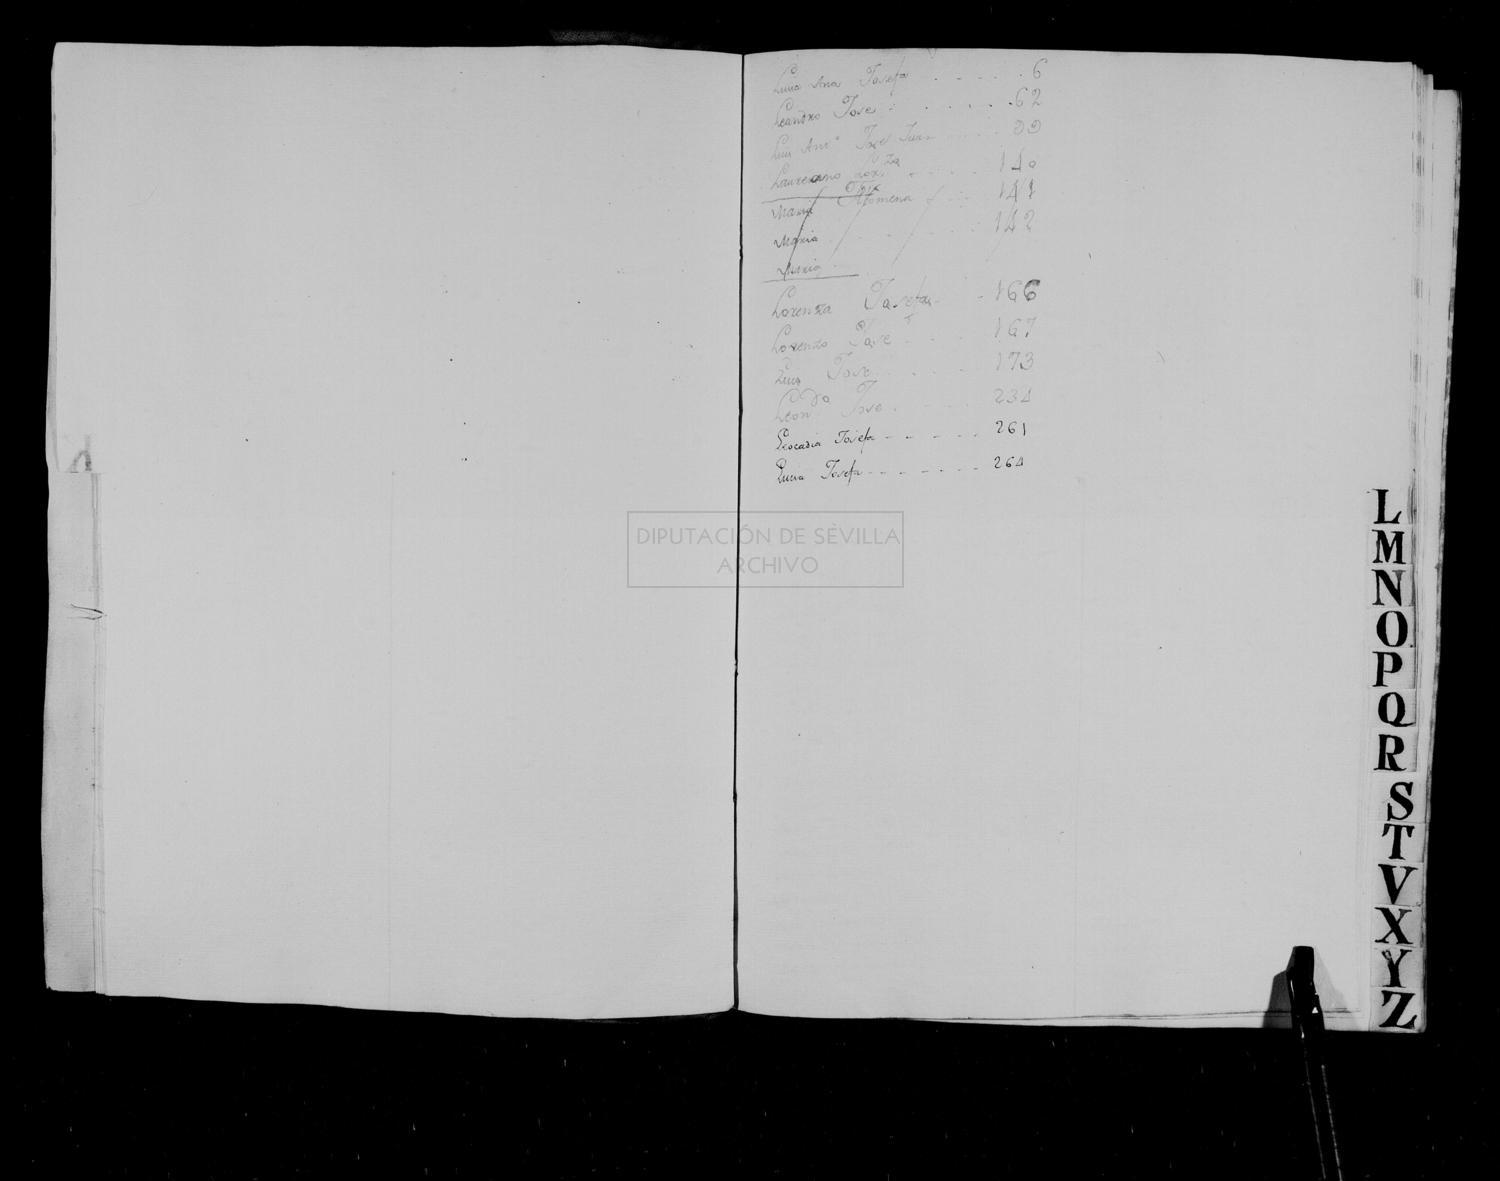 Luisa Ana Josefa - - - - 6
Leandro Jose - - - - - 62
Luis Ant.º José Juan - - - 99
Laureano - - - - 140
Maria Filomena - - - 141
Maria - - - - - 142
Maria
Lorenza Josefa - - 166
Lorenzo Jose - - - 167
Luis Jose - - - - 173
Leon.do Jose - - - - 234
Leocadia Josefa - - - - - 261
Lucia Josefa - - - - - - 264
DIPUTACIÓN DE SEVILLA
ARCHIVO
L
M
N
O
P
Q
R
S
T
V
X
Y
Z